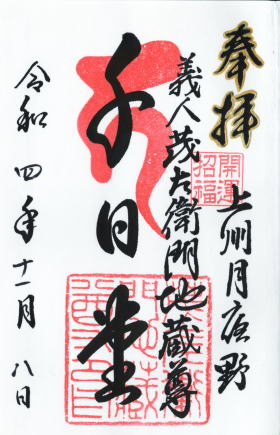 奉拝
開運
招福
上州月夜野
義人茂左衛門地蔵尊
千日堂
令和四年十一月八日